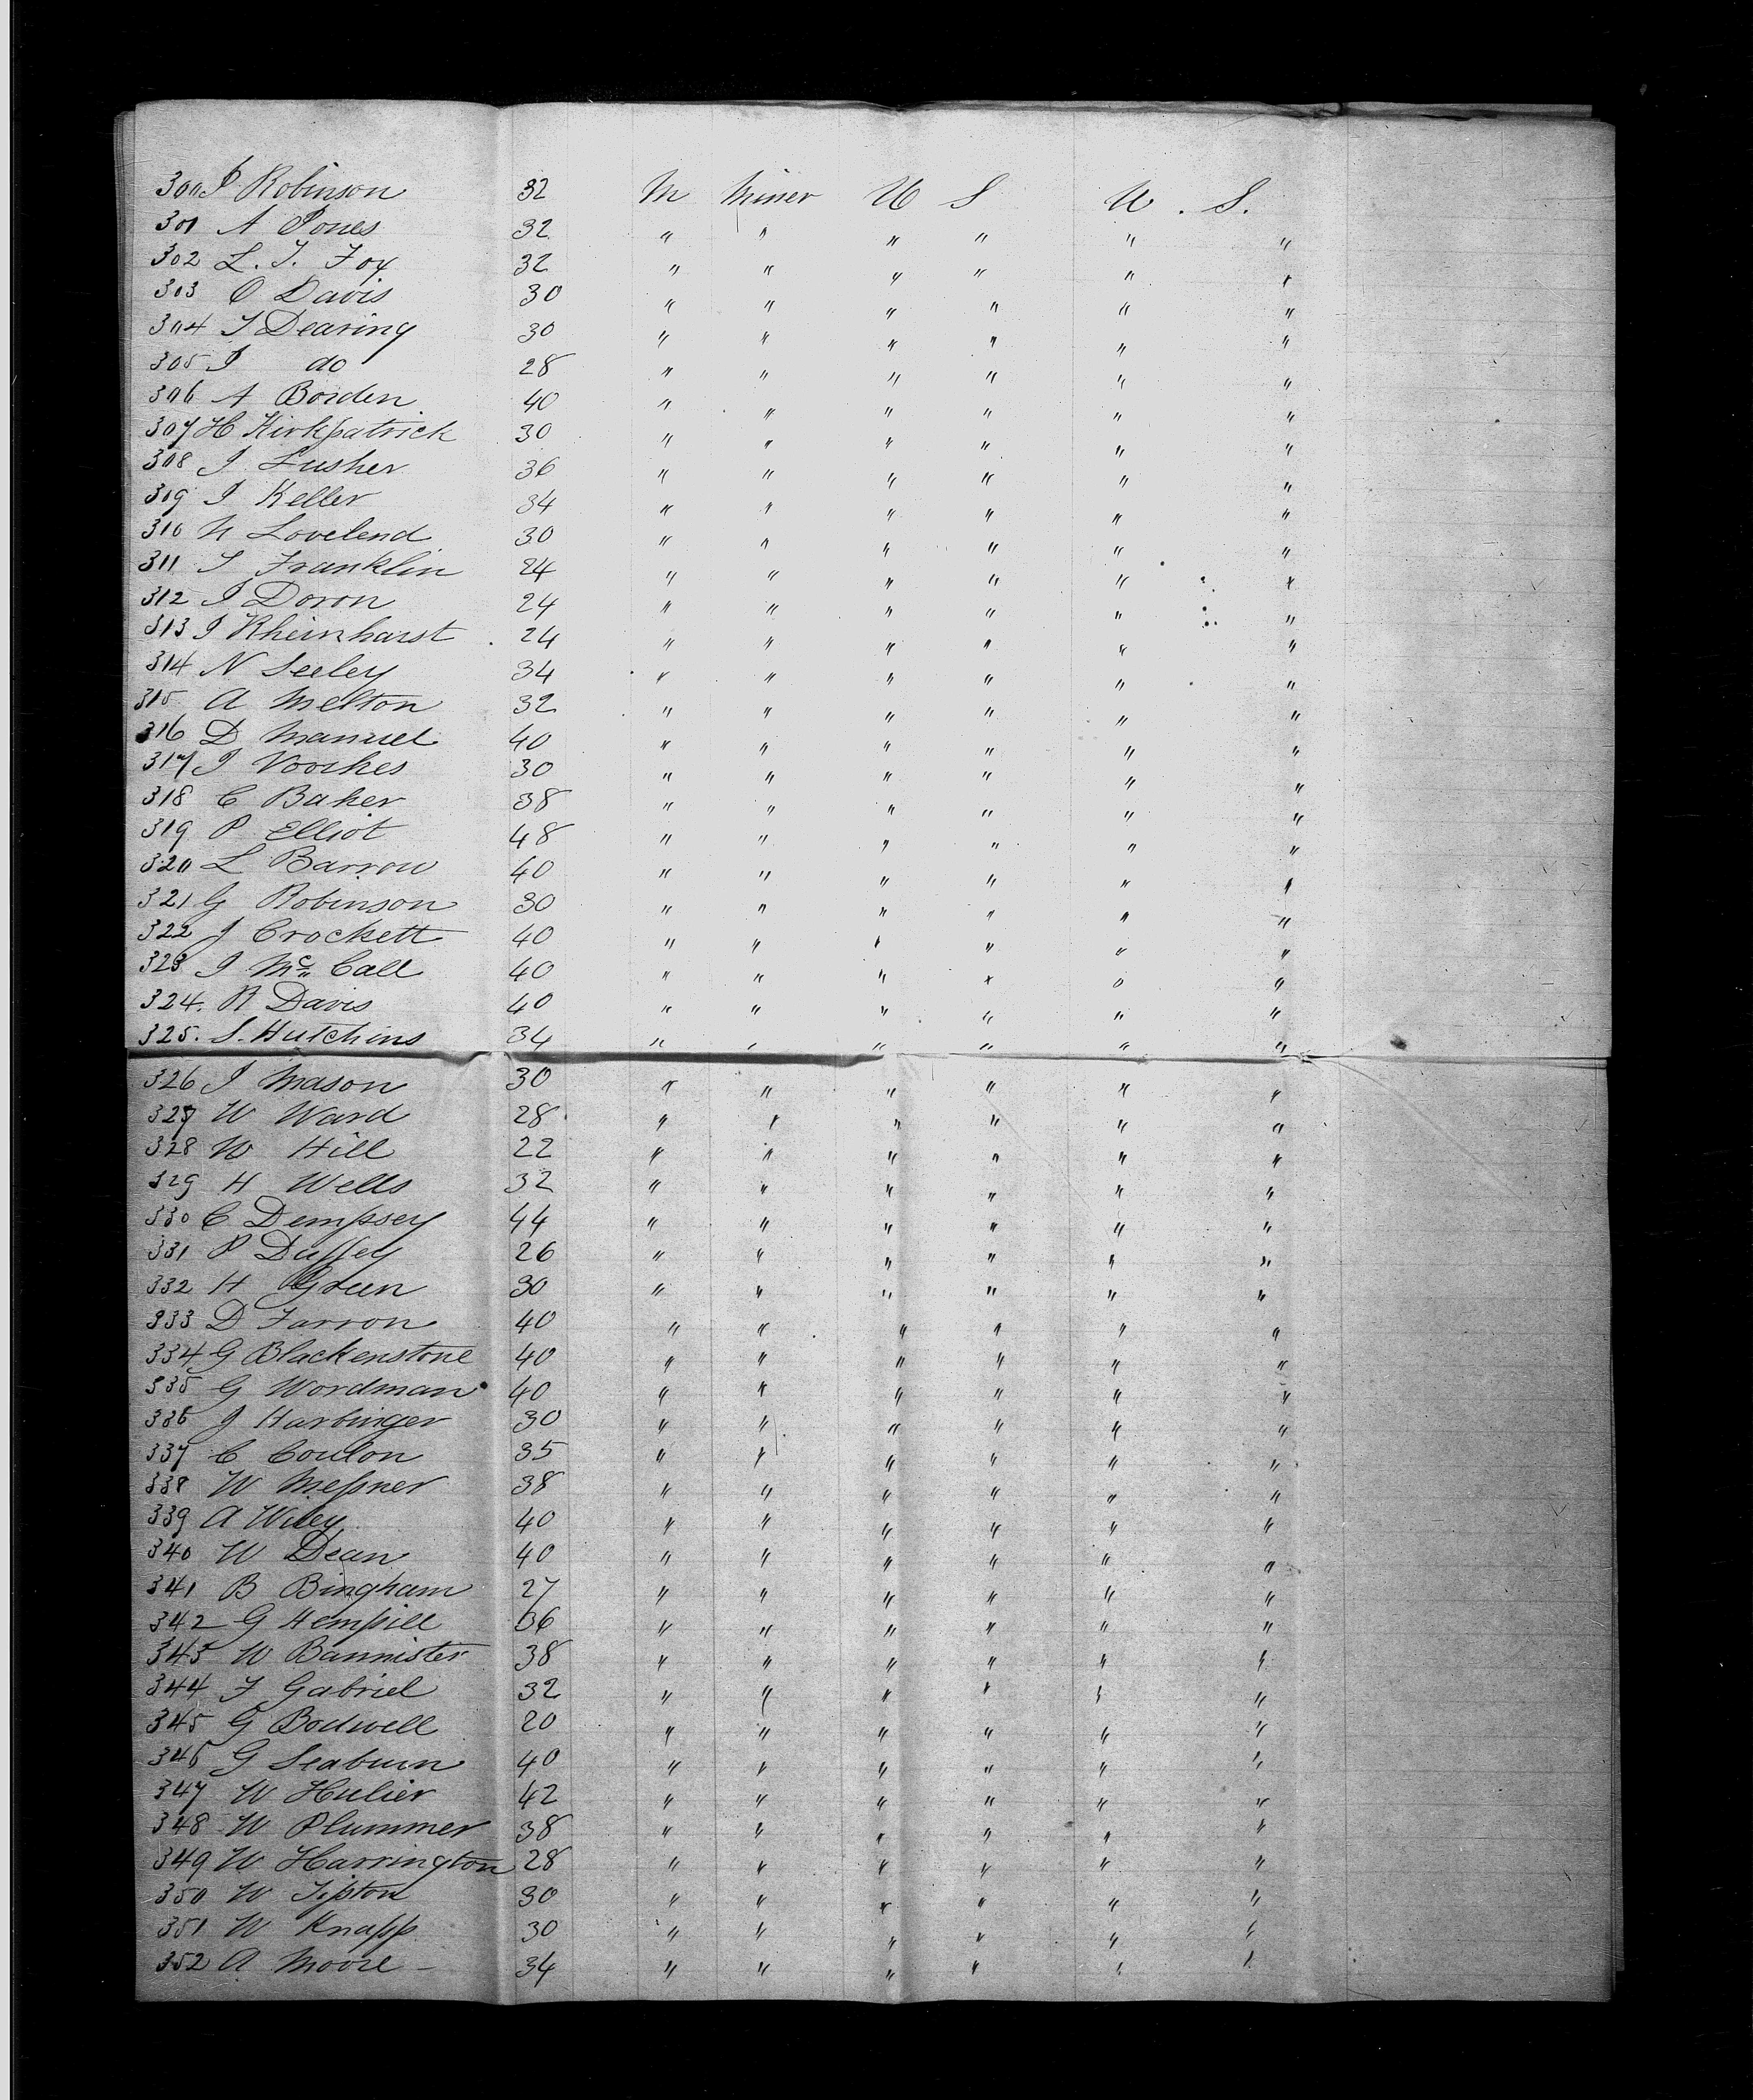 300 J Robinson 32 M Miner U S U. S.
301 A Jones 32 " " " " " "
302 L. T. Fox 32 " " " " " "
303 C Davis 30 " " " " " "
304 T Dearing 30 " " " " " "
305 J do 28 " " " " " "
306 A Borden 40 " " " " " "
307 H Kirkpatrick 30 " " " " " "
308 J Lusher 36 " " " " " "
309 J Keller 34 " " " " " "
310 N Lovelend 30 " " " " " "
311 T Franklin 24 " " " " " "
312 J Doron 24 " " " " " "
313 J Rheinharst 24 " " " " " "
314 N Seeley 34 " " " " " "
315 A Melton 32 " " " " " "
316 D Manuel 40 " " " " " "
317 J Voorhes 30 " " " " " "
318 C Baker 38 " " " " " "
319 P Elliot 48 " " " " " "
320 L Barrow 40 " " " " " "
321 G Robinson 30 " " " " " "
322 J Crockett 40 " " " " " "
323 J McCall 40 " " " " " "
324. R Davis 40 " " " " " "
325. S. Hutchins 34 " " " " " "
326 J Mason 30 " " " " " "
327 W Ward 28 " " " " " "
328 W Hill 22 " " " " " "
329 H Wells 32 " " " " " "
330 C Dempsey 44 " " " " " "
331 P Duffey 26 " " " " " "
332 H Green 30 " " " " " "
333 D Farron 40 " " " " " "
334 G Blackenstone 40 " " " " " "
335 G Wordman 40 " " " " " "
336 J Harbinger 30 " " " " " "
337 C Coulon 35 " " " " " "
338 W Messner 38 " " " " " "
339 A Wiley 40 " " " " " "
340 W Dean 40 " " " " " "
341 B Bingham 27 " " " " " "
342 G Hempill 36 " " " " " "
343 W Bannister 38 " " " " " "
344 F Gabriel 32 " " " " " "
345 G Bodwell 20 " " " " " "
346 G Seaburn 40 " " " " " "
347 W Hulier 42 " " " " " "
348 W Plummer 38 " " " " " "
349 W Harrington 28 " " " " " "
350 W Tipton 30 " " " " " "
351 W Knapp 30 " " " " " "
352 A Moore 34 " " " " " "